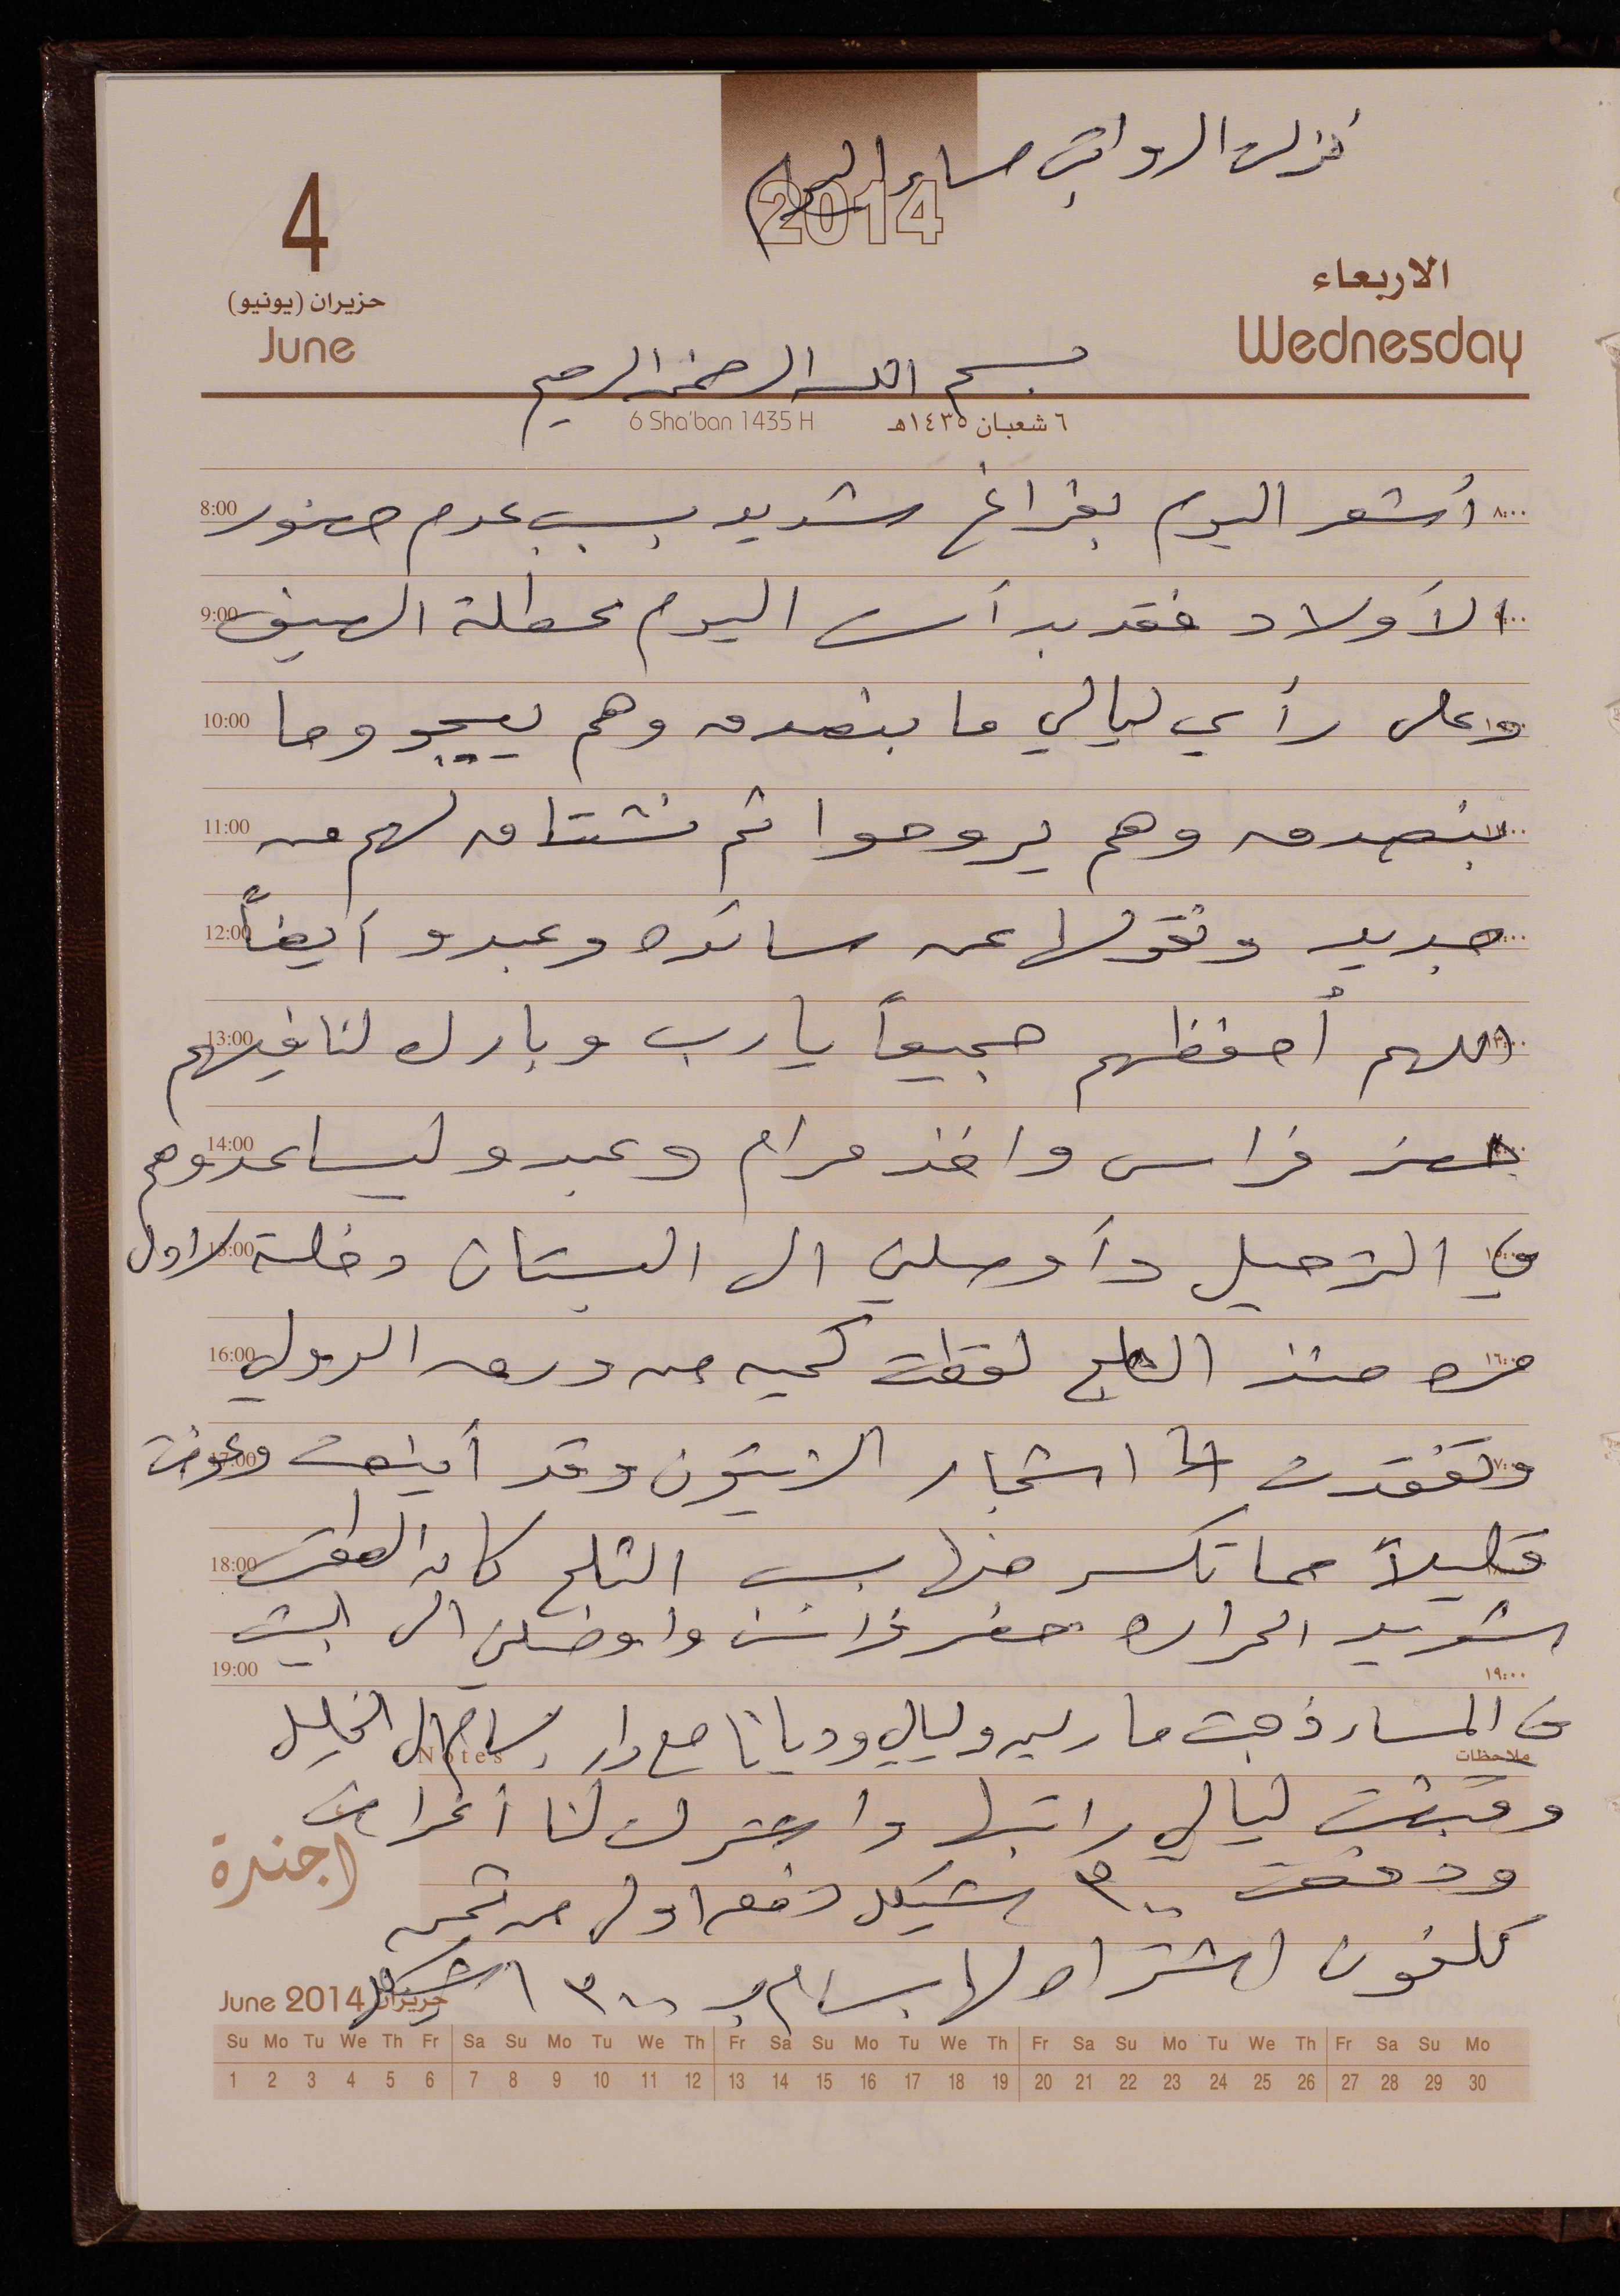 نزلت الرواتب مساء اليوم
2014
4
حزيران (يونيو)
June
الاربعاء
Wednesday
بسم الله الرحمن الرحيم
6 Sha'ban 1435 H
٦ شعبان ١٤٣٥هـ
8:00 أشعر اليوم بفراغ شديد بسبب عدم حضور ٨:٠٠
9:00 الأولاد فقد بدأت اليوم عطلة الصيف
10:00 وعلى رأي ليالي ما بنصدق وهم ييجو وما
11:00 بنصدق وهم يروحوا ثم نشتاق لهم من
12:00 جديد ونقولها عن سائده وعبدو أيضاً
13:00 اللهم أحفظهم جميعاً يارب وبارك لنا فيهم
14:00 حضر فراس واخذ مرام وعبدو ليساعدوهم
15:00 في الترحيل وأوصلني الى البستان دخلته لاول
16:00 مره منذ الثلج لقطت كميه من ورق الدوالي ١٦:٠٠
17:00 وتفقدت اشجار الزيتون وقد أينعت وعوضت
18:00 قليلاً مما تكسر منها بسبب الثلج كان الطقس
شديد الحراره حضر فراس واوصلني الى البيت
19:00
١٩:٠٠
في المساء ذهبت مارلين وليالي وديانا مع دار بسام الى الخليل
Notes
ملاحظات
وقبضت ليالي راتبها واشترت لنا أغراض
اجندة
ودفعت ٣٠٠ شيكل دفعه اولى من ثمن
تلفون اشتراه لها بسام ب ١٣٠٠ شيكل
June 2014 حزيران
Su Mo Tu We Th Fr Sa Su Mo Tu We Th Fr Sa Su Mo Tu We Th Fr Sa Su Mo Tu We Th Fr Sa Su Mo
1 2 3 4 5 6 7 8 9 10 11 12 13 14 15 16 17 18 19 20 21 22 23 24 25 26 27 28 29 30